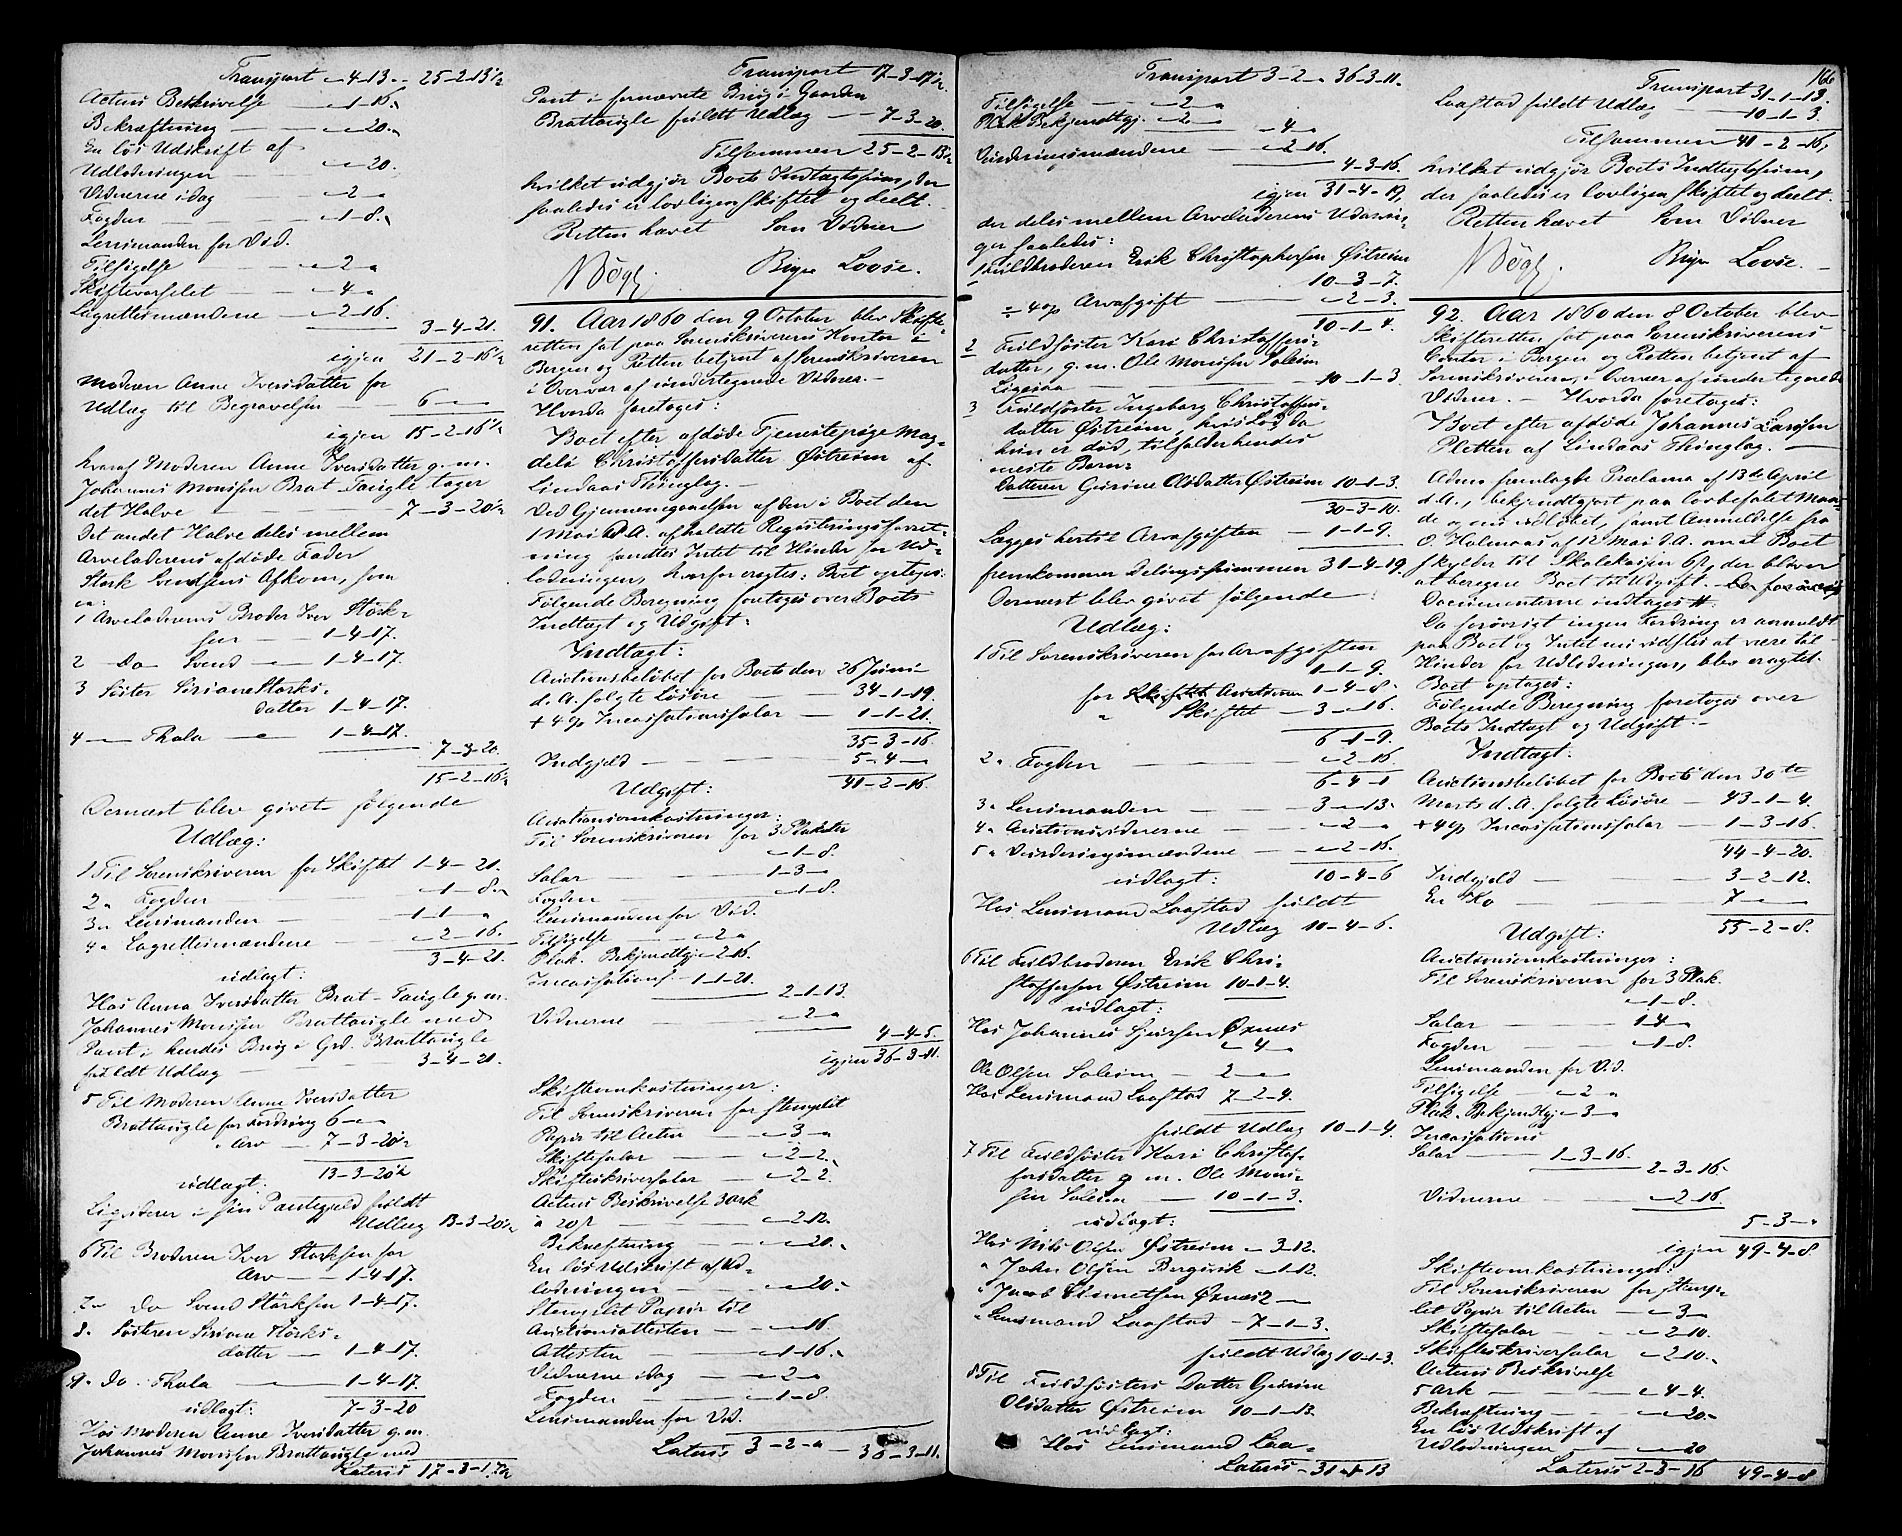 Transport „-4-13- „ 25-2-13½
Actens Beskrivelse — „-1-16„
Bekræftning — „-„-20„
En løs Udskrift af
Udlodningen — „-„-20.
Vidnerne idag — „-2-„
Fogden — „-1-8„
Lensmanden for Vid.
Tilsigelse — „-2-„
Skiftevarselet — „-4-„
Lagrettesmændene — „-2-16.
3-4-21.
igjen 21-2-16½
Moderen Anne Iversdatter for
Udlæg til Begravelsen — 6-„-„
igjen 15-2-16½
hvoraf Moderen Anne Iversdatter g. m.
Johannes Monssen Brat-Taugle tager
det Halve — 7-3-20½
Det andet Halve deles mellem
Arveladerens afdøde Fader
Stork Svendsens Afkom, som
er:
1 Arveladerens Broder Iver Stork-
sen — 1-4-17.
2 Do Svend — 1-4-17.
3 Søster Siriane Storks-
datter 1-4-17.
4 — Thala — 1-4-17.
7-3-20.
15-2-16½
Dernæst blev givet følgende
Udlæg:
1 Til Sorenskriveren for Skiftet 1-4-21.
2 „ Fogden — „-1-8„
3 „ Lensmanden — 1-1-„
4 „ Lagrettesmændene — „-2-16.
3-4-21.
udlagt:
Hos Anna Iversdatter Brat-Taugle g. m.
Johannes Monssen Brattaugle med
Pant i hendes Brug i Grd. Brattaugle
fuldt Udlæg — 3-4-21.
5 Til Moderen Anne Iversdatter
Brattaugle for Fordring 6-„-
„ Arv — 7-3-20½
13-3-20½
udlagt:
Liqviderer i sin Pantegjeld fuldt
Udlæg 13-3-20½
6 Til Broderen Iver Storksen for
Arv — 1-4-17.
7 „ Do Svend Storksen 1-4-17.
8 „ Søsteren Siriane Storks-
datter — 1-4-17.
9 „ Do. Thala — 1-4-17.
udlagt: 7-3-20
Hos Moderen Anne Iversdatter g. m.
Johannes Monssen Brattaugle med
Lateris 17-3-17½
Transport 17-3-17½
Pant i fornævnte Brug i Gaarden
Brattaugle fuldt Udlæg — 7-3-20.
Tilsammen 25-2-13½
hvilket udgjør Boets Indtægtssum, der
saaledes er lovligen skiftet og deelt.
Retten hævet Som Vidner
Bøgh. Brynr Loose.
91. Aar 1860 den 9 October blev Skifte-
retten sat paa Sorenskriverens Kontor i
Bergen og Retten betjent af Sorenskriveren
i Overvær af undertegnede Vidner. —
Hvorda foretoges:
Boet efter afdøde Tjenestepige Mag-
dele Christoffersdatter Østreim af
Lindaas Thinglag. —
Ved Gjennemgaaelsen af den i Boet den
1 Mai d. A. afholdte Registreringsforret-
ning fandtes Intet til Hinder for Ud-
lodningen, hvorfor eragtes: Boet optages.
Følgende Beregning foretoges over Boets
Indtægt og Udgift:
Indtægt:
Auctionsbeløbet for Boets den 26 Juni
d. A. solgte Løsøre — 34-1-19.
+ 4 % Incassationssalar — 1-1-21.
35-3-16.
Indgjeld — 5-4-„
41-2-16.
Udgift:
Auctionsomkostninger:
Til Sorenskriveren for 3 Plakater
„-1-8.
Salar — 1-3-„
Fogden — „-1-8.
Lensmanden for Vid.
Tilsigelse — „-2-„
Plak. Bekjendtgj. „-2-16.
Incassations. — 1-1-21.
2-1-13.
Vidnerne — „-2-„
4-4-5.
igjen 36-3-11.
Skifteomkostninger:
Til Sorenskriveren for stemplet
Papir til Acten — „-3-„
Skiftesalar — „-2-2.
Skifteskriversalar — „-2-2.
Actens Beskrivelse 3 Ark
a 20 ß — „-2-12.
Bekræftning — „-„-20„
En løs Udskrift af Ud-
lodningen — „-„-20„
Stemplet Papir til
Auctionsattesten — „-„-16.
Attesten — „-1-16„
Vidnerne idag — „-2-„
Fogden — „-1-8.
Lensmanden for Vid.
Lateris 3-2-„ — 36-3-11.
Transport 3-2-„ 36-3-11.
Tilsigelse — „-2-„
Plak. Bekjendtgj. „-2-„
„-4-„
Vurderingsmændene — „-2-16.
4-3-16.
igjen 31-4-19,
der deles mellem Arveladerens Udarvin-
ger saaledes:
1 Fuldbroderen Erik Christophersen Østreim
10-3-7.
÷ 4 % Arvafgift — „-2-3.
10-1-4.
2 Fuldsøster Kari Christoffers-
datter, g. m. Ole Monssen Soleim
Ligesaa — 10-1-3.
3 Fuldsøster Ingeborg Christoffers-
datter Østreim, hvis Lod da
hun er død, tilfalder hendes
eneste Barn:
Datteren Gurine Olsdatter Østreim 10-1-3.
30-3-10.
Lægges hertil Arvafgiften — 1-1-9.
fremkommer Delingssummen 31-4-19.
Dernæst blev givet følgende
Udlæg:
1 Til Sorenskriveren for Arvafgiften
1-1-9.
for Auctionen 1-4-8.
„ Skiftet — 3-„-16.
6-1-9.
2 „ Fogden — „-2-16
6-4-1
3 „ Lensmanden — 3-„-13.
4 „ Auctionsvidnerne — „-2-„
5 „ Vurderingsmændene — „-2-16.
udlagt: 10-4-6
Hos Lensmand Laastad fuldt
Udlæg 10-4-6.
6 Til Fuldbroderen Erik Chri-
stoffersen Østreim 10-1-4.
udlagt:
Hos Johannes Sjursen Øxnæs
„-4-„
Ole Olsen Soleim — 2-„-„
Hos Lensmand Laastad 7-2-4.
fuldt Udlæg 10-1-4.
7 Til Fuldsøster Kari Christof-
fersdatter g. m. Ole Mons-
sen Soleim — 10-1-3.
udlagt:
Hos Nils Olsen Østreim „-3-12.
„ John Olsen Bergsvik „-1-12.
„ Jacob Øxnæs 2-„-
„ Lensmand Laastad — 7-1-3.
fuldt Udlæg 10-1-3.
8 Til Fuldsøsters Datter Gurine
Olsdatter Østreim 10-1-13
udlagt:
Hos Lensmand Laa-
Lateris — 31-1-13
166
Transport 31-1-13.
Laastad fuldt Udlæg — 10-1-3.
Tilsammen 41-2-16,
hvilket udgjør Boets Indtægtssum,
der saaledes er lovligen skiftet og deelt.
Retten hævet Som Vidner
Bøgh. Brynr Loose. —
92. Aar 1860 den 8 October blev
Skifteretten sat paa Sorenskriverens
Contor i Bergen og Retten betjent af
Sorenskriveren, i Overvær af undertegnede
Vidner. — Hvorda foretoges:
Boet efter afdøde Johannes Larssen
Pletten af Lindaas Thinglag. —
Adm: fremlagte Proclama af 13de April
d. A., bekjendtgjort paa lovbefalet Maa-
de og nu udløbet, samt Anmeldelse fra
O. Holmaas af 12 Mai d. A. om at Boet
skylder til Skolekassen 6 ß, der bliver
at beregne Boet til Udgift.
Documenterne indtages #.
Da forøvrigt ingen Fordring er anmeldt
paa Boet og Intet nu vidstes at være til
Hinder for Udlodningen, blev eragtet:
Boet optages:
Følgende Beregning foretoges over
Boets Indtægt og Udgift. —
Indtægt:
Auctionsbeløbet for Boets den 30te
Marts d. A. solgte Løsøre — 43-1-4.
+ 4 % Incassationssalar — 1-3-16.
44-4-20.
Indgjeld — 3-2-12.
En Ko — 7-„-„
55-2-8.
Udgift:
Auctionsomkostninger:
Til Sorenskriveren for 3 Plak.
„-1-8.
Salar — 1-4-„
Fogden — „-1-8.
Lensmanden for Vid.
Tilsigelse — „-2-„
Plak. Bekjendtgj. — 3-„
Incassations
Salar — 1-3-16.
2-3-16.
Vidnerne — „-2-16
5-3-„
igjen 49-4-8.
Skifteomkostninger:
Til Sorenskriveren for stemp-
let Papir til Acten — „-3-„
Skiftesalar — „-2-10.
Skifteskriversalar — „-2-10„
Actens Beskrivelse
5 Ark — „-4-4.
Bekræftning — „-„-20„
En løs Udskrift af
Udlodningen — „-„-20
Lateris 2-3-16 49-4-8